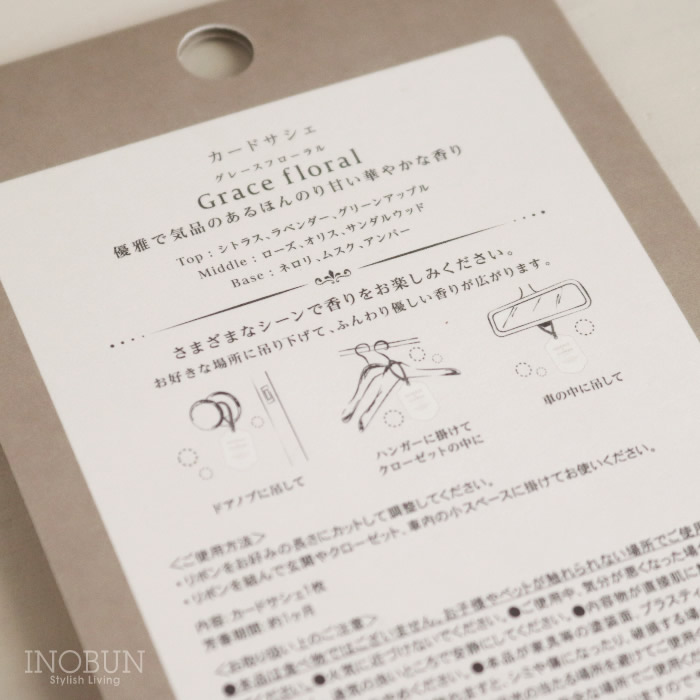 カードサシェ
グレースフローラル
Grace floral
優雅で気品のあるほんのり甘い華やかな香り
Top : シトラス、ラベンダー、グリーンアップル
Middle : ローズ、オリス、サンダルウッド
Base : ネロリ、ムスク、アンバー
さまざまなシーンで香りをお楽しみください。
お好きな場所に吊り下げて、ふんわり優しい香りが広がります。
ドアノブに吊して
ハンガーに掛けて
クローゼットの中に
車の中に吊して
<ご使用方法>
・リボンをお好みの長さにカットして調整してください。
・リボンを結んで玄関やクローゼット、車内の小スペースに掛けてお使いください。
内容：カードサシェ1枚
芳香期間：約1ヶ月
<お取り扱い上のご注意>
●本品は食べ物ではございません。お子様やペットが触れられない場所でご使用
ください。●火気に近づけないでください。●ご使用中、気分が悪くなった場合
●内容物が直接肌に
●本品が家具等の塗装面、プラスティ
INOBUN
Stylish Living